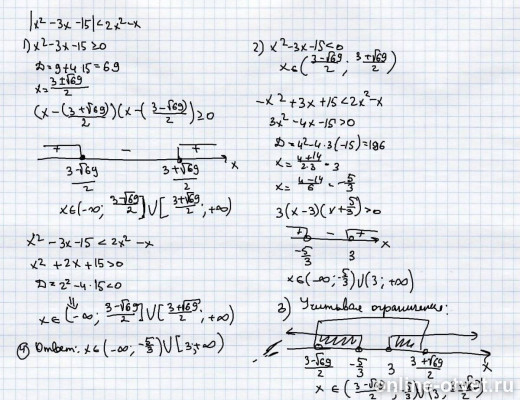 |x² - 3x - 15| < 2x² - x
1) x² - 3x - 15 ≥ 0
D = 9 + 4·15 = 69
x = (3±√69)/2
(x - (3+√69)/2)(x - (3-√69)/2) ≥ 0
+ - + x
(3-√69)/2 (3+√69)/2
x ∈ (-∞; (3-√69)/2] ∪ [(3+√69)/2; +∞)
x² - 3x - 15 < 2x² - x
x² + 2x + 15 > 0
D = 2² - 4·15 < 0
⇓
x ∈ (-∞; (3-√69)/2] ∪ [(3+√69)/2; +∞)
2) x² - 3x - 15 < 0
x ∈ ((3-√69)/2; (3+√69)/2)
-x² + 3x + 15 < 2x² - x
3x² - 4x - 15 > 0
D = 4² - 4·3(-15) = 196
x = (4+14)/(2·3) = 3
x = (4-14)/6 = -5/3
3(x - 3)(x + 5/3) > 0
+ - + x
-5/3 3
x ∈ (-∞; -5/3) ∪ (3; +∞)
3) Учитывая ограничения:
(3-√69)/2 -5/3 3 (3+√69)/2 x
x ∈ ((3-√69)/2; -5/3) ∪ (3; (3+√69)/2)
4) Ответ: x ∈ (-∞; -5/3) ∪ [3; +∞)
online-otvet.ru